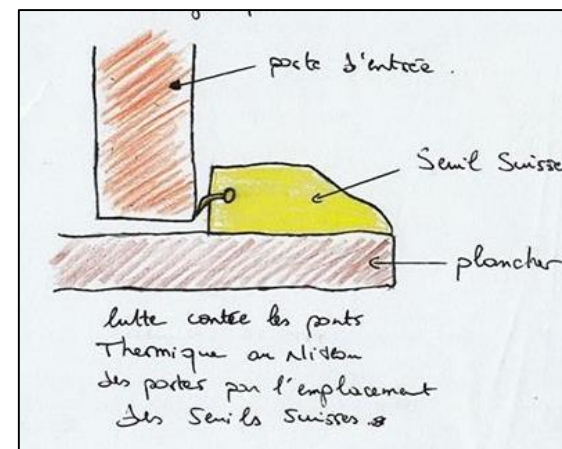 porte d'entrée.
Seuil Suisse
plancher
lutte contre les ponts
Thermique au Niveau
des portes par l'emplacement
des Seuils Suisses.